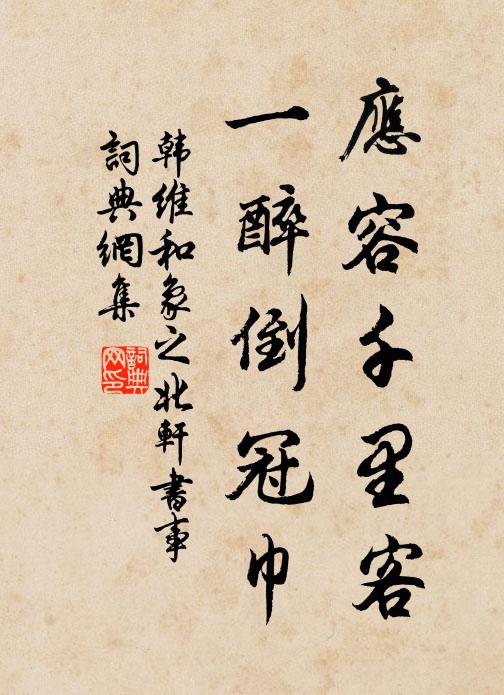 應容千里客
一醉倒冠巾
韩維和象之北軒書事
詞典網集
詞典网印